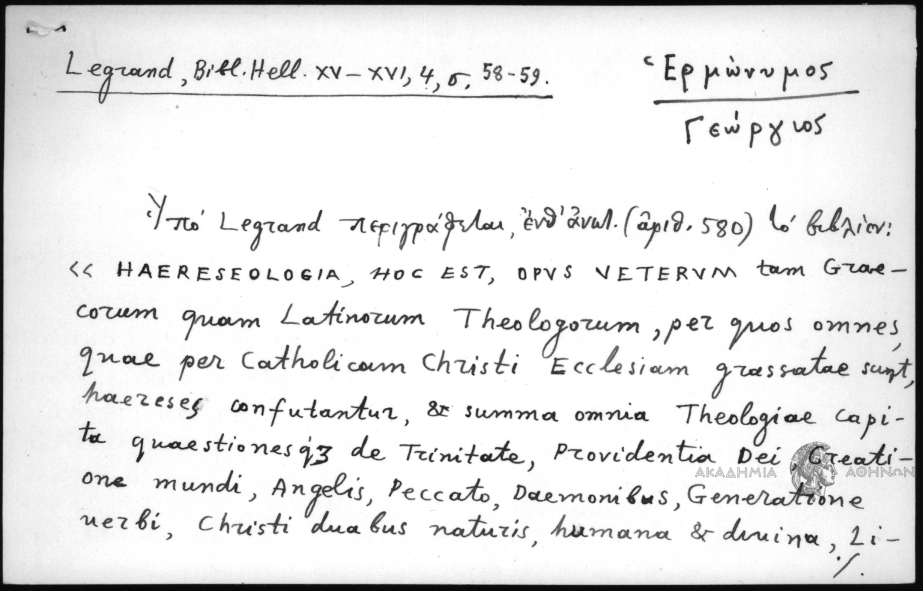 Legrand, Bibl. Hell. XV–XVI, 4, σ. 58-59.
Ἑρμώνυμος
Γεώργιος
Ὑπό Legrand περιγράφεται, ἐνθ' ἀνωτ. (ἀριθ. 580) τό βιβλίον:
<< HAERESEOLOGIA, HOC EST, OPVS VETERVM tam Grae–
corum quam Latinorum Theologorum, per quos omnes,
quae per Catholicam Christi Ecclesiam grassatae sunt,
haereses confutantur, & summa omnia Theologiae capi-
ta quaestionesq́ʒ de Trinitate, Providentia Dei, Creati-
one mundi, Angelis, Peccato, Daemonibus, Generatione
uerbi, Christi duabus naturis, humana & diuina, Li-
./.
ΑΚΑΔΗΜΙΑ ΑΘΗΝΩΝ